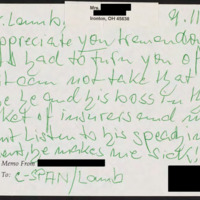 Mrs.
Ironton, OH 45638
9.11
. Lamb:
appreciate you tremendou
had to turn you of
I can not take that
he be and his boss in th
ket of insurers and
nt Listen to his speedin
he makes me sick!
Memo From
To: C-SPAN/Lamb